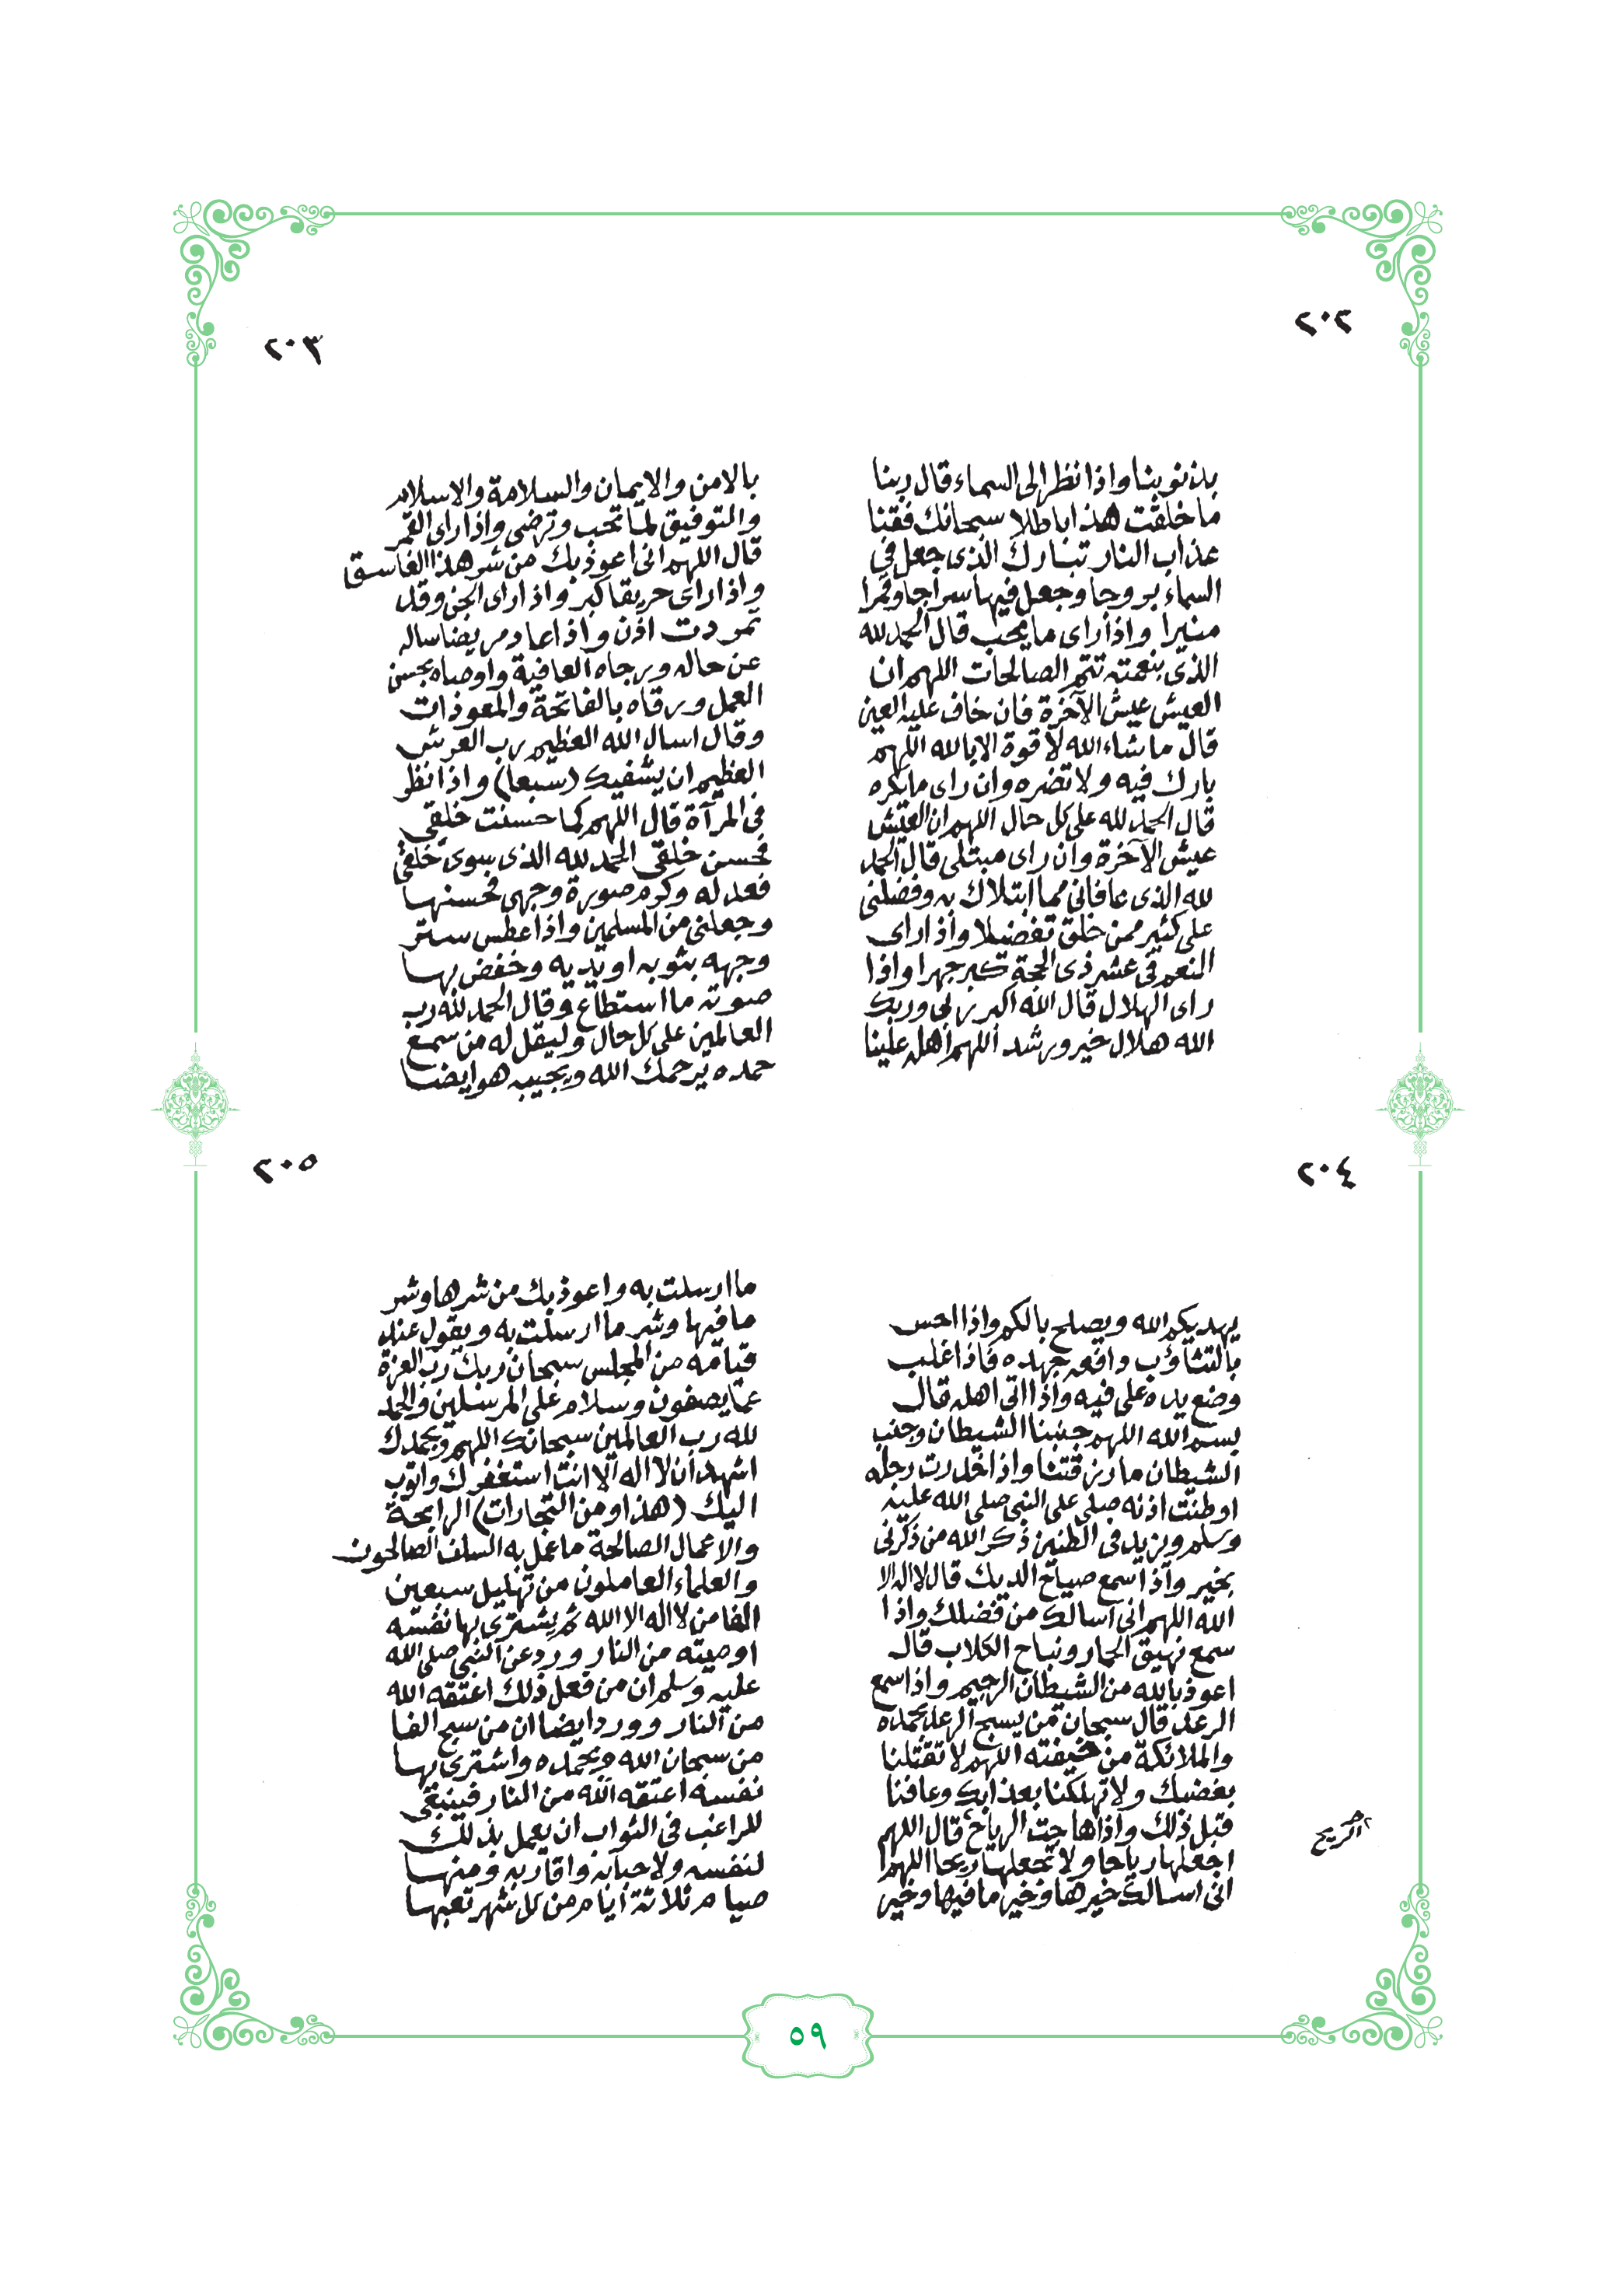 ٢٠٢
بذنوبنا واذا نظر الى السماء قال ربنا
ما خلقت هذا باطلا سبحانك فقنا
عذاب النار تبارك الذى جعل في
السماء بروجا وجعل فيها سراجا وقمرا
منيرا واذا راى ما يحب قال الحمد لله
الذى بنعمته تتم الصالحات اللهم ان
العيش عيش الآخرة فان خاف عليه العين
قال ما شاء الله لا قوة الا بالله اللهم
بارك فيه ولا تضره وان راى ما يكره
قال الحمد لله على كل حال اللهم ان العيش
عيش الآخرة وان راى مبتلى قال الحمد
لله الذى عافانى مما ابتلاك به وفضلنى
على كثير ممن خلق تفضيلا واذا راى
النعم فى عشر ذى الحجة كبر جهرا واذا
راى الهلال قال الله اكبر ربى وربك
الله هلال خير ورشد اللهم اهله علينا
٢٠٣
بالامن والايمان والسلامة والاسلام
والتوفيق لما تحب وترضى واذا راى القمر
قال اللهم انى اعوذ بك من شر هذا الغاسق
واذا راى حريقا كبر واذا راى الجن وقد
تمردت اذن واذا عاد مريضا ساله
عن حاله ورجاه العافية واوصاه بحسن
العمل ورقاه بالفاتحة والمعوذات
وقال اسال الله العظيم رب العرش
العظيم ان يشفيك (سبعا) واذا نظر
فى المرآة قال اللهم كما حسنت خلقي
فحسن خلقي الحمد لله الذى سوى خلقي
فعدله وكرم صورة وجهى فحسنها
وجعلنى من المسلمين واذا عطس ستر
وجهه بثوبه او يديه وخفض بها
صوته ما استطاع وقال الحمد لله رب
العالمين على كل حال وليقل له من سمع
حمده يرحمك الله ويجيبه هو ايضا
٢٠٤
يهديكم الله ويصلح بالكم واذا احس
بالتثاؤب دافعه جهده فاذا غلب
وضع يده على فيه واذا اتى اهله قال
بسم الله اللهم جنبنا الشيطان وجنب
الشيطان ما رزقتنا واذا خدرت رجله
او طنت اذنه صلى على النبي صلى الله عليه
وسلم ويزيد فى الطنين ذكر الله من ذكرنى
بخير واذا سمع صياح الديك قال لا اله الا
الله اللهم انى اسالك من فضلك واذا
سمع نهيق الحمار ونباح الكلاب قال
اعوذ بالله من الشيطان الرجيم واذا سمع
الرعد قال سبحان من يسبح الرعد بحمده
والملائكة من خيفته اللهم لا تقتلنا
بغضبك ولا تهلكنا بعذابك وعافنا
قبل ذلك واذا هاجت الرياح قال اللهم
اجعلها رياحا ولا تجعلها ريحا اللهم
انى اسالك خيرها وخير ما فيها وخير
٢٠٥
ما ارسلت به واعوذ بك من شرها وشر
ما فيها وشر ما ارسلت به ويقول عند
قيامه من المجلس سبحان ربك رب العزة
عما يصفون وسلام على المرسلين والحمد
لله رب العالمين سبحانك اللهم وبحمدك
اشهد ان لا اله الا انت استغفرك واتوب
اليك (هذا ومن التجارات) الرابحة
والاعمال الصالحة ما عمل به السلف الصالحون
والعلماء العاملون من تهليل سبعين
الفا من لا اله الا الله ثم يشترى بها نفسه
او ميته من النار ورد عن النبي صلى الله
عليه وسلم ان من فعل ذلك اعتقه الله
من النار وورد ايضا ان من سبح الفا
من سبحان الله وبحمده واشترى بها
نفسه اعتقه الله من النار فينبغي
للراغب فى الثواب ان يعمل بذلك
لنفسه ولاحبابه واقاربه ومنها
صيام ثلاثة ايام من كل شهر تعبها
٥٩